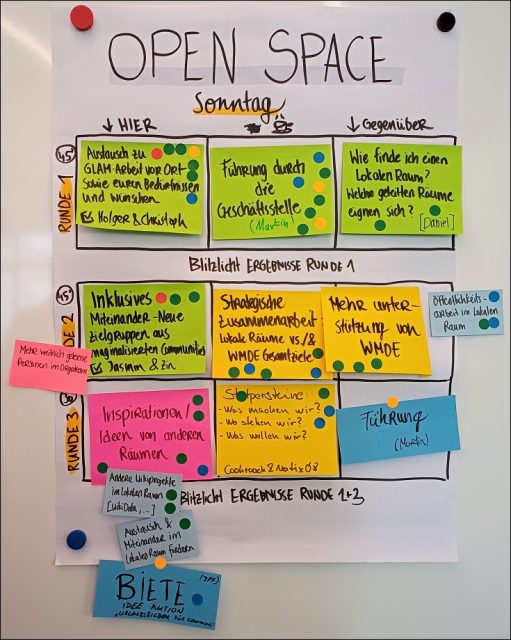 OPEN SPACE
Sonntag
↓ HIER
↓ Gegenüber
45'
RUNDE 1
Austausch zu
GLAM-Arbeit vor Ort
sowie euren Bedürfnissen
und Wünschen
Holger & Christoph
Führung durch
die
Geschäftsstelle
(Martin)
Wie finde ich einen
Lokalen Raum?
Welche geteilten Räume
eignen sich?
[Daniel]
Blitzlicht ERGEBNISSE RUNDE 1
45'
2
Inklusives
Miteinander - Neue
Zielgruppen aus
marginalisierten Communities
Jasmin & Zin
Strategische
Zusammenarbeit
Lokale Räume vs./&
WMDE Gesamtziele
Mehr unter-
stützung von
WMDE
Öffentlichkeits-
arbeit im Lokalen
Raum
Mehr weiblich gelesene
Personen im Orgateam
30
RUNDE 3
Inspirationen/
Ideen von anderen
Räumen
Stolpersteine:
- Was machen wir?
- Wo stehen wir?
- Was wollen wir?
Führung
(Martin)
Andere Wikiprojekte
im Lokalen Raum
[WikiData, ...]
Blitzlicht ERGEBNISSE RUNDE 1+3
Austausch &
Miteinander im
Lokalen Raum fördern
BIETE
IDEE AKTION
"URLAUBSBILDER FÜR